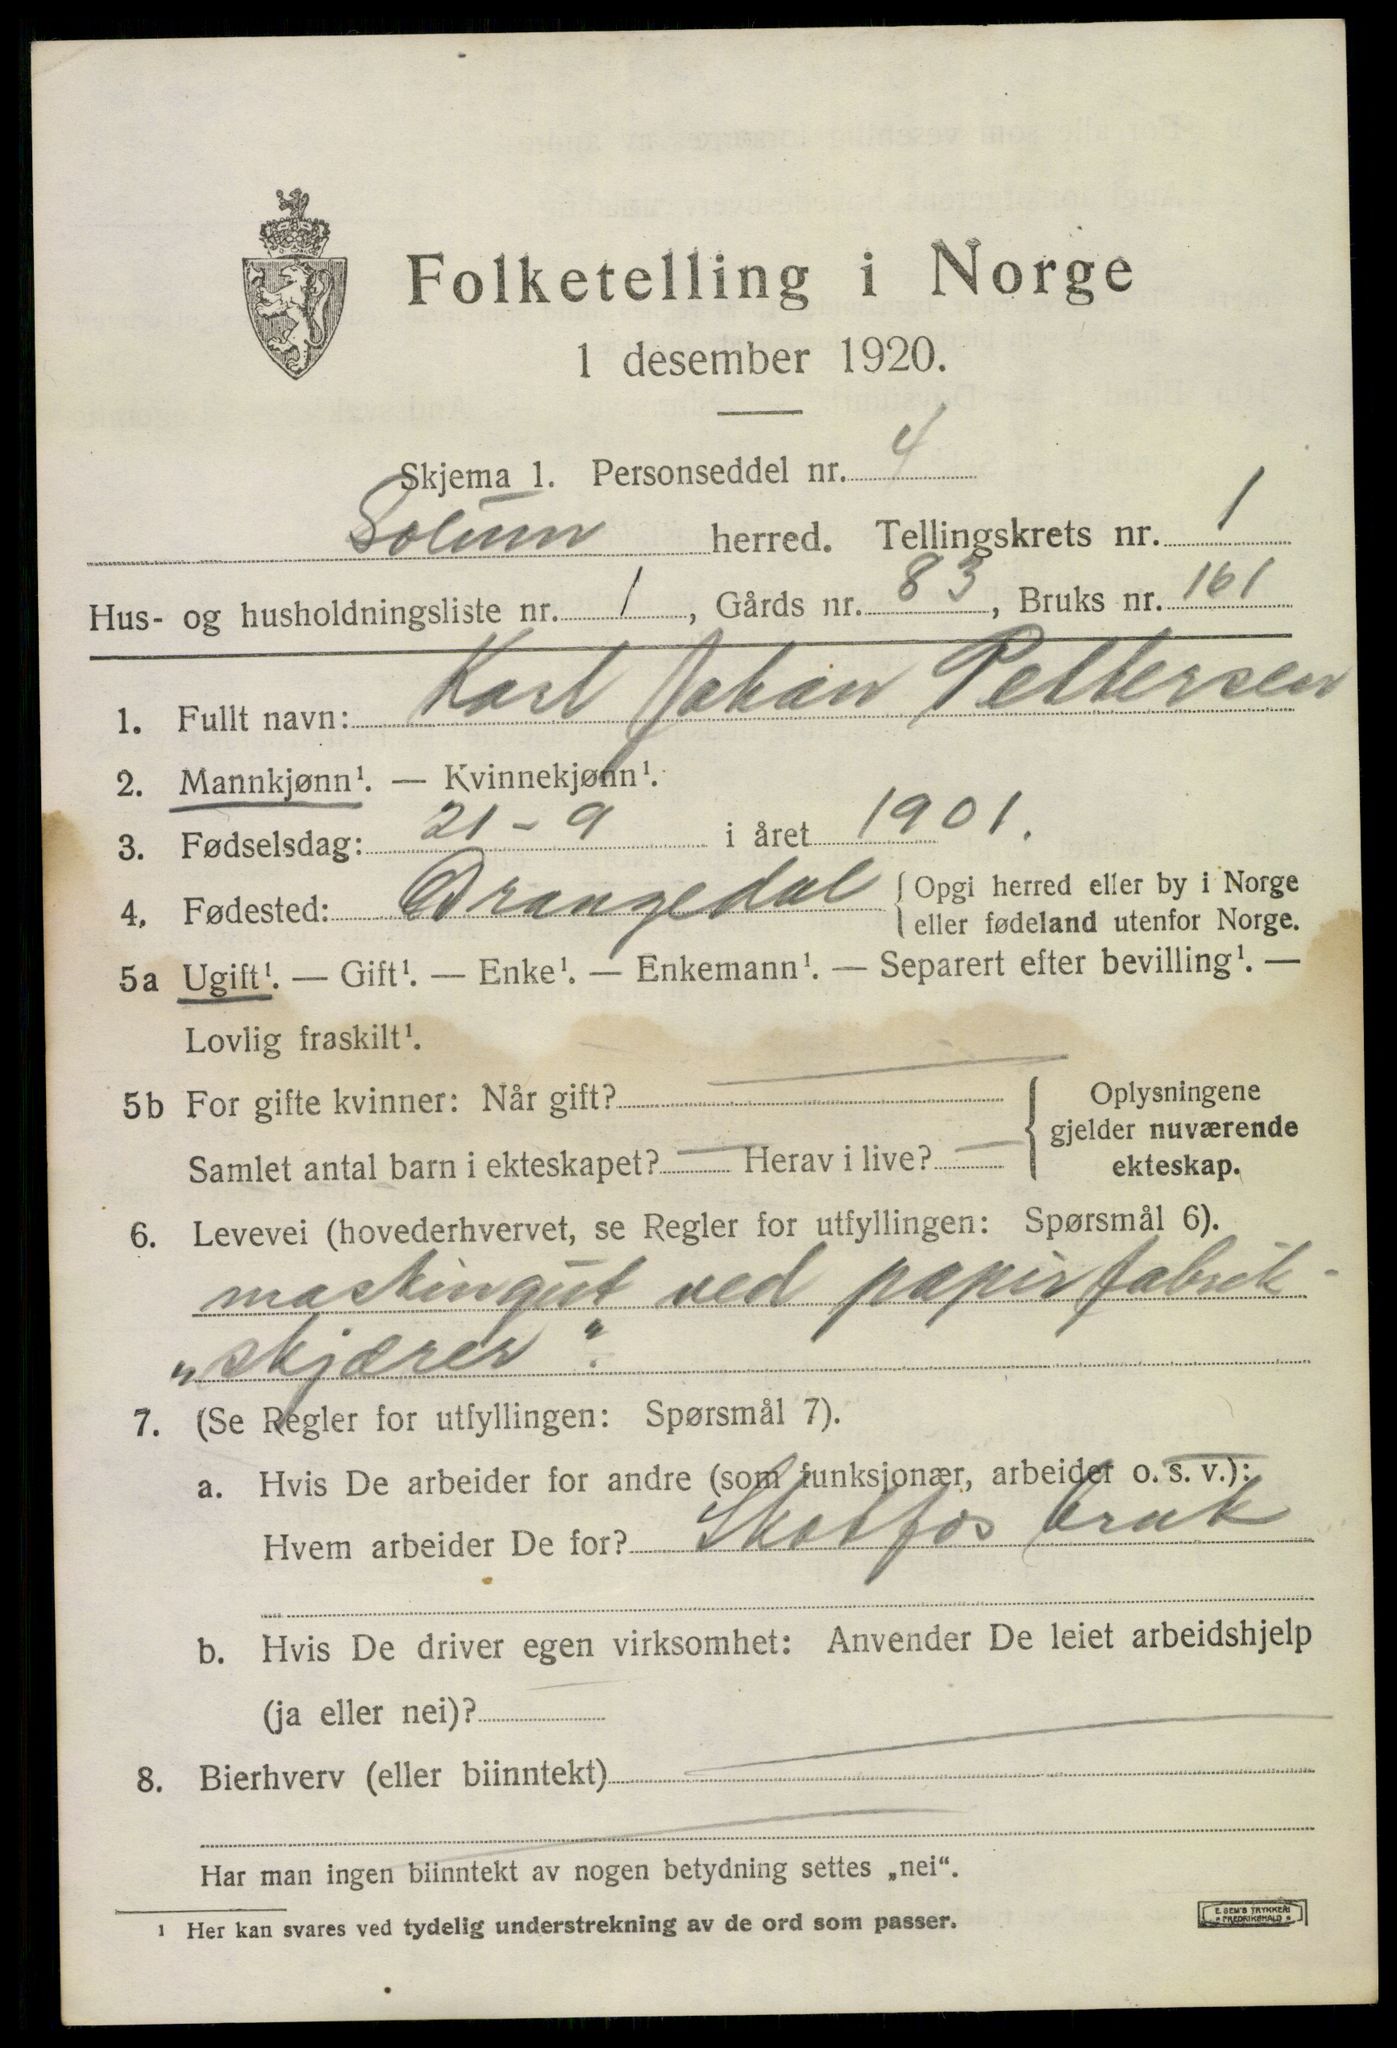 Folketelling i Norge
1 desember 1920.
Skjema 1. Personseddel nr. 4
Solum herred. Tellingskrets nr. 1
Hus- og husholdningsliste nr. 1, Gårds nr. 83, Bruks nr. 161
1. Fullt navn: Karl Johan Pettersen
2. Mannkjønn¹. — Kvinnekjønn¹.
3. Fødselsdag: 21-9 i året 1901.
4. Fødested: Drangedal { Opgi herred eller by i Norge
eller fødeland utenfor Norge.
5a Ugift¹. — Gift¹. — Enke¹. — Enkemann¹. — Separert efter bevilling¹. —
Lovlig fraskilt¹.
5b For gifte kvinner: Når gift? —
Samlet antal barn i ekteskapet? — Herav i live? —
{ Oplysningene
gjelder nuværende
ekteskap.
6. Levevei (hovederhvervet, se Regler for utfyllingen: Spørsmål 6).
maskingut ved papirfabrik -
„skjærer“.
7. (Se Regler for utfyllingen: Spørsmål 7).
a. Hvis De arbeider for andre (som funksjonær, arbeider o. s. v.):
Hvem arbeider De for? Skotfos bruk
b. Hvis De driver egen virksomhet: Anvender De leiet arbeidshjelp
(ja eller nei)? —
8. Bierhverv (eller biinntekt) —
Har man ingen biinntekt av nogen betydning settes „nei“.
¹ Her kan svares ved tydelig understrekning av de ord som passer.
E. SEM'S TRYKKERI
FREDRIKSHALD